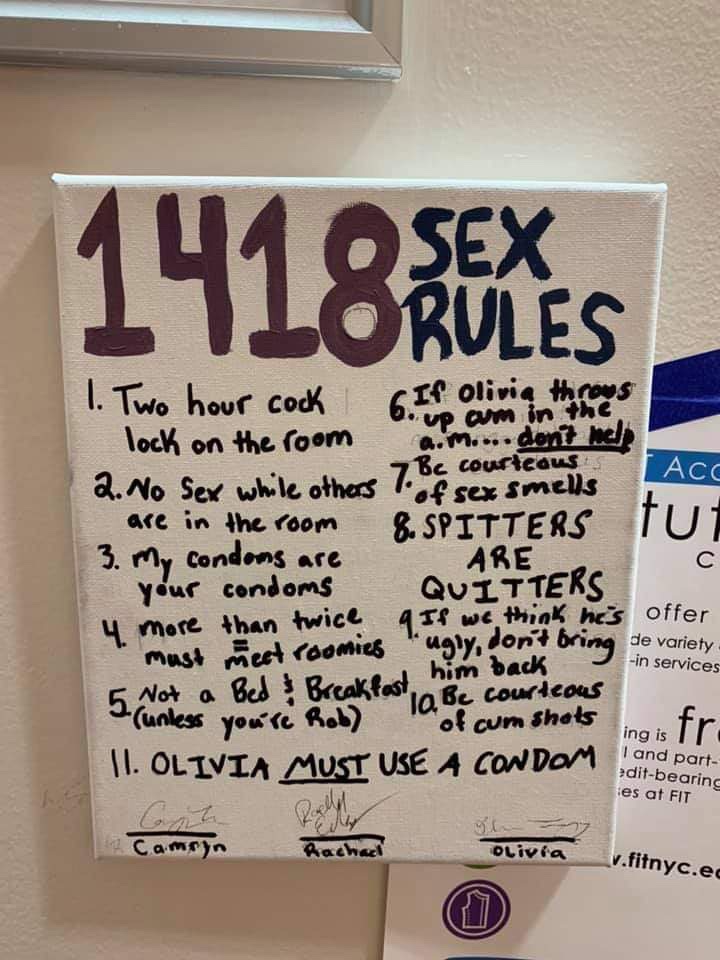 1418 SEX
RULES
1. Two hour cock
lock on the room
2. No Sex while others
are in the room
3. My condoms are
your condoms
4. more than twice
= must meet roomies
5. Not a Bed & Breakfast
(unless you're Rob)
6. If Olivia throws
up cum in the
a.m.... don't help
7. Be courteous
of sex smells
8. SPITTERS
ARE
QUITTERS
9. If we think he's
ugly, don't bring
him back
10. Be courteous
of cum shots
11. OLIVIA MUST USE A CONDOM
Camryn
Rachael
Olivia
Acc
tut
C
offer
de variety
-in services
ing is fr
l and part-
edit-bearing
es at FIT
v.fitnyc.e